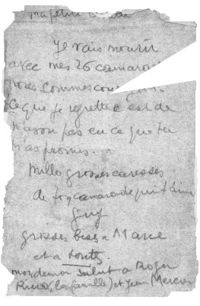 ma petite
Je vais mourir
avec mes 26 camara
nous sommes cou
Ce que je regrette c'est de
n'avoir pas eu ce que tu
m'as promis.
Mille grosses caresses
de ton camarade qui t'aime
Guy
grosses bises a Marie
et a toute
mon dernier salut a Roger
(la famille) et Jean Mercier